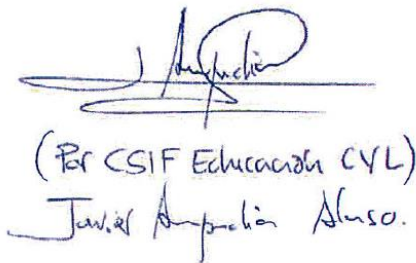 J Ampudia
(Por CSIF Educación CYL)
Javier Ampudia Alonso.